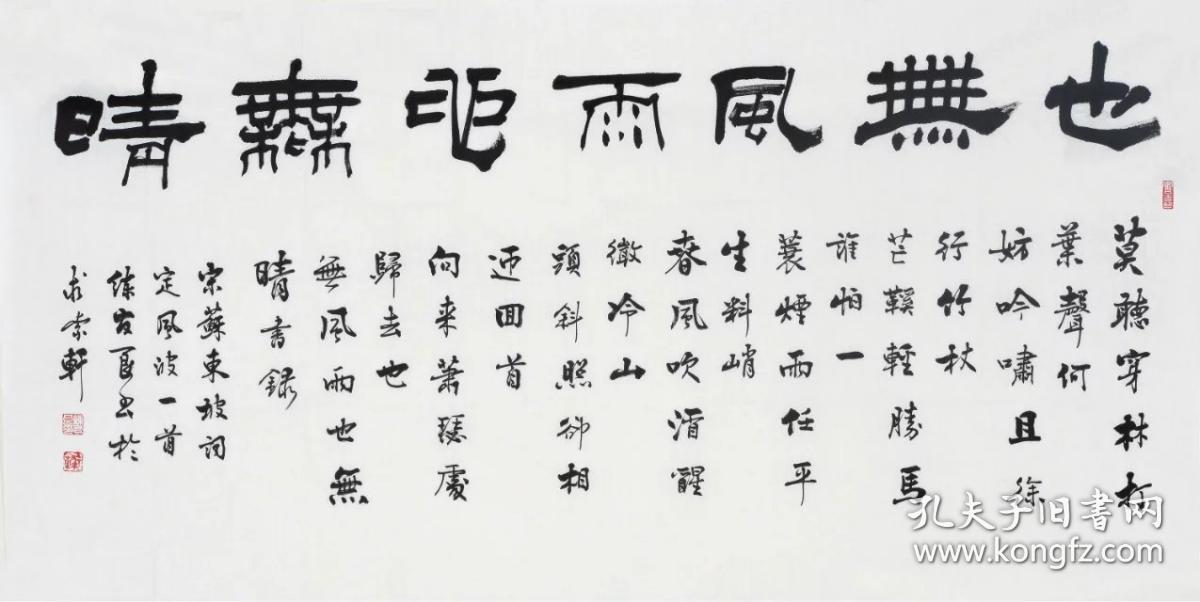 也無風雨也無晴
莫聽穿林打
葉聲何
妨吟嘯且徐
行竹杖
芒鞵輕勝馬
誰怕一
蓑煙雨任平
生料峭
春風吹酒醒
微冷山
頭斜照卻相
迎回首
向来蕭瑟處
歸去也
無風雨也無
晴書録
宋蘇東坡詞
定風波一首
书於
求索軒
孔夫子旧书网
www.kongfz.com